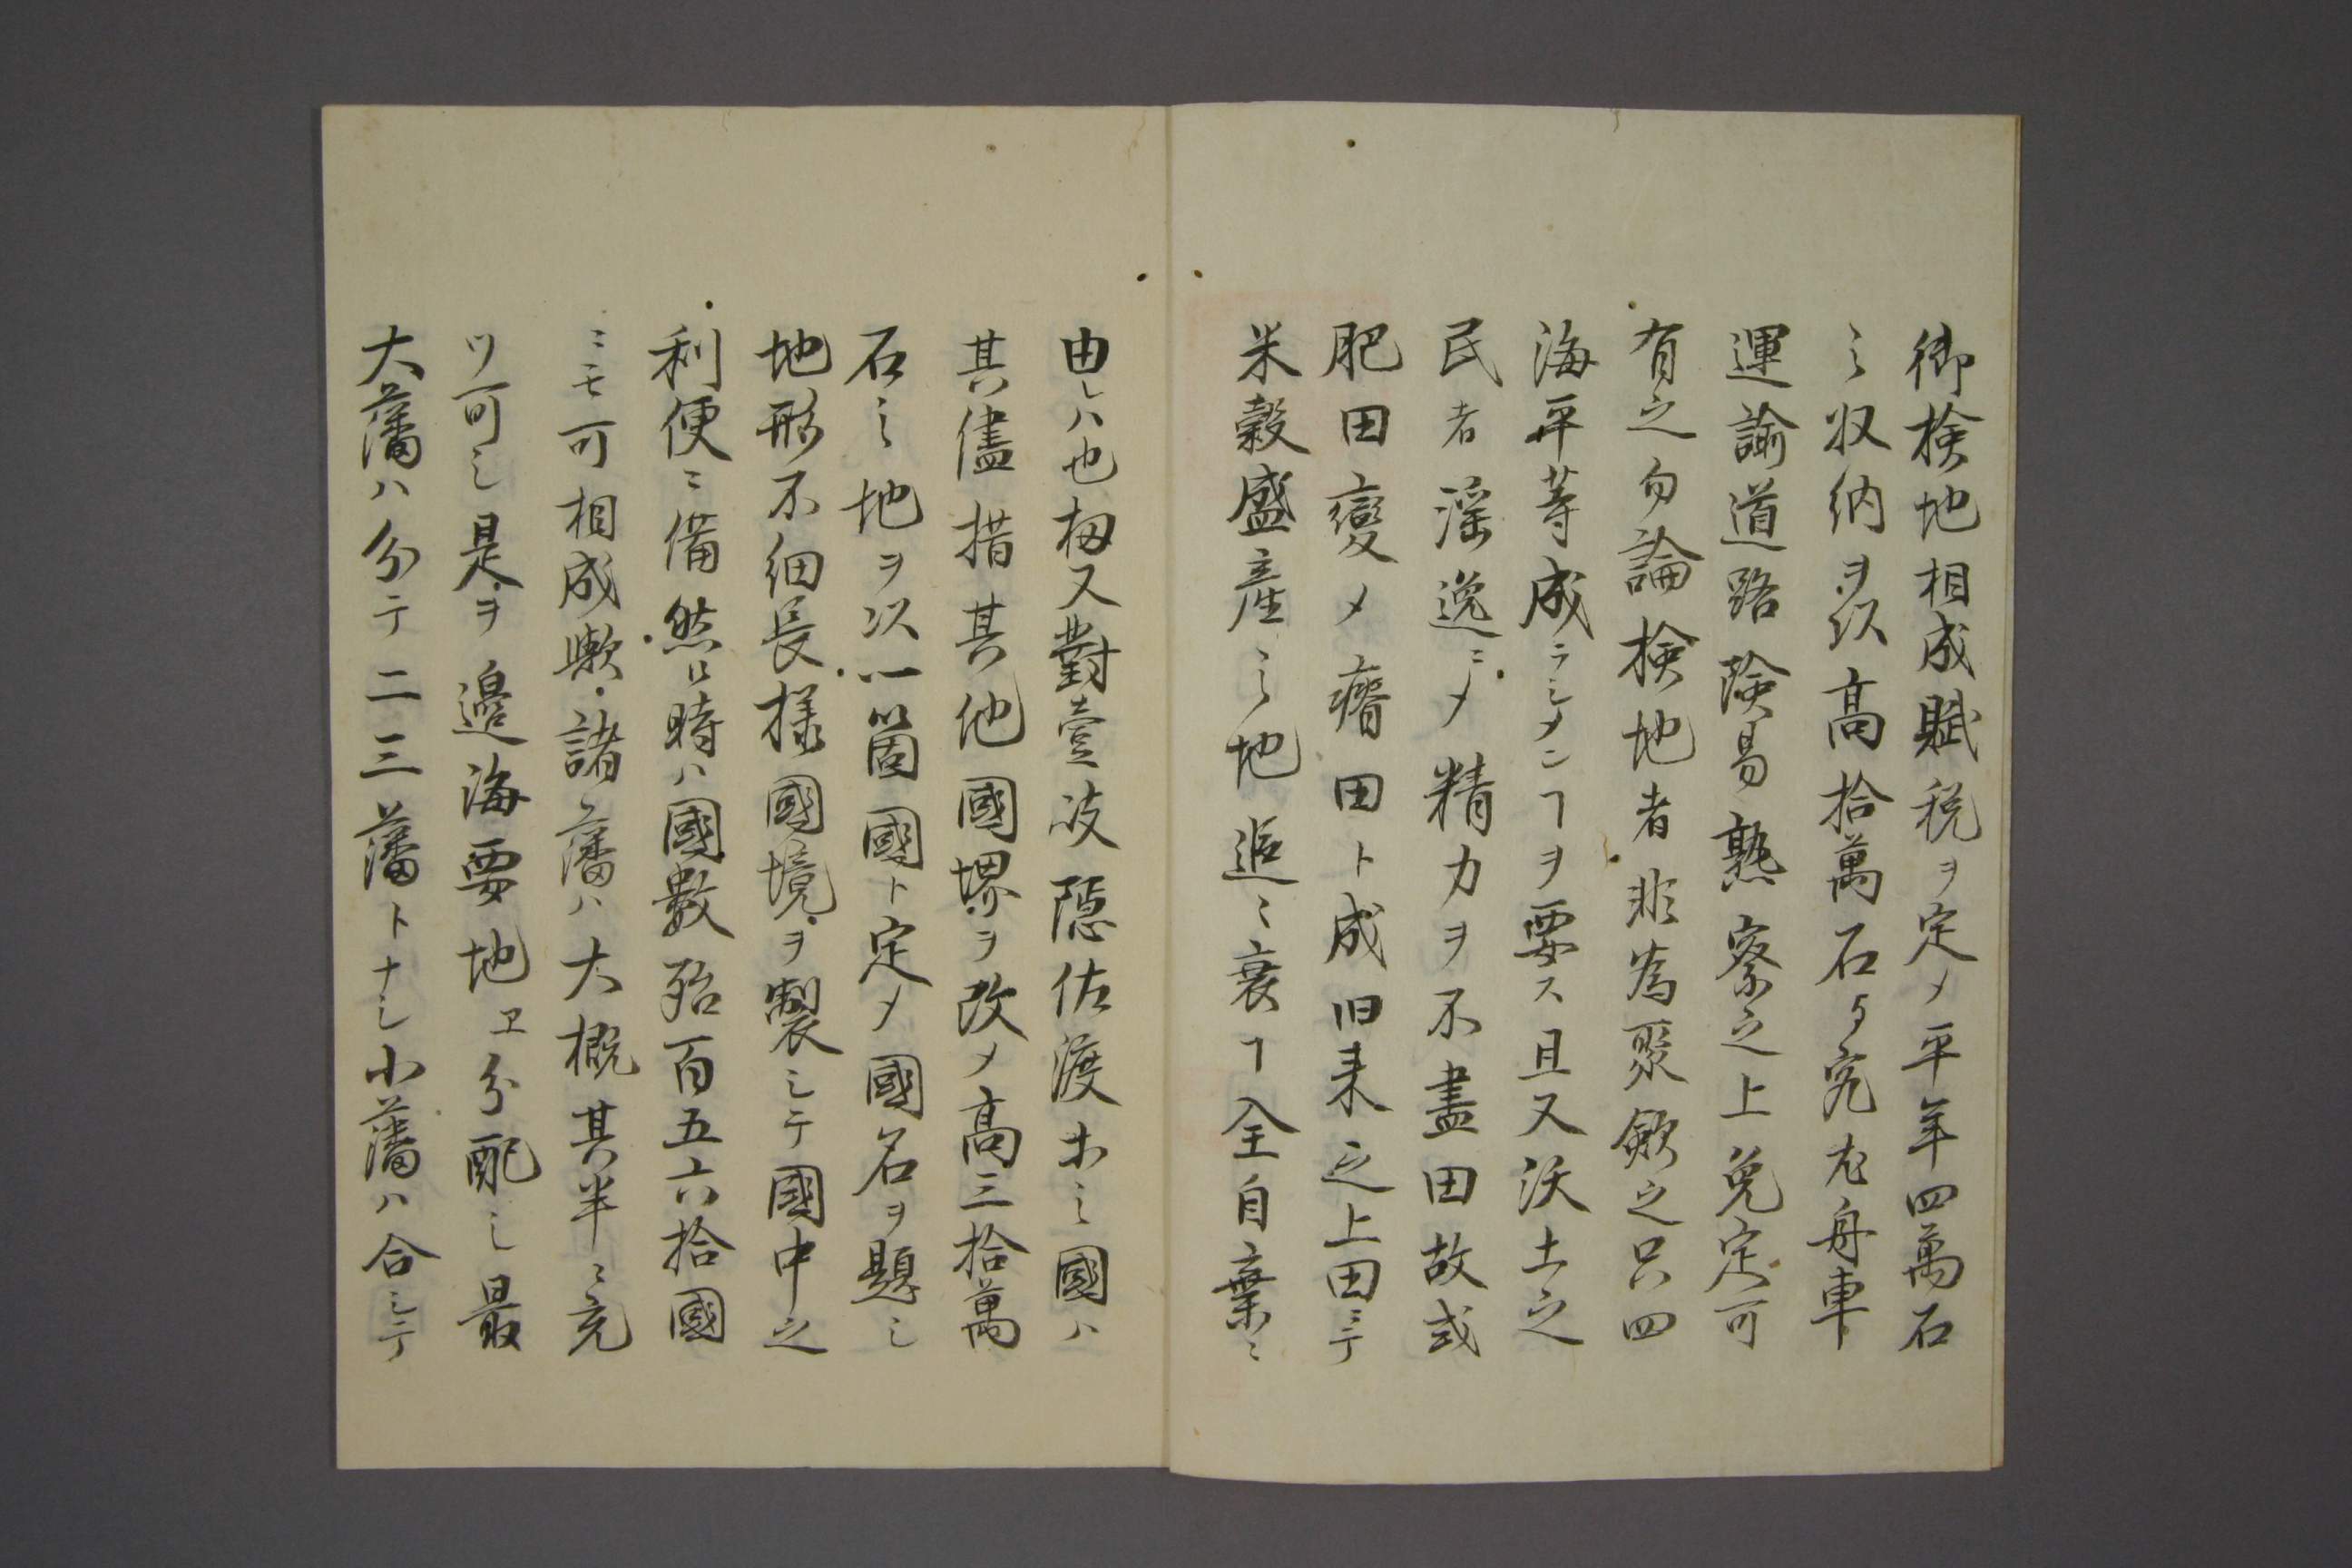 御検地相成賦税ヲ定メ平年四萬石
之収納ヲ以高拾萬石与究尤舟車
運諭道路険易熟察之上免定可
有之勿論検地者非為聚歛之只四
海平等成ラシメンヿヲ要ス且又沃土之
民者淫逸ニメ精力ヲ不盡田故或
肥田變メ瘠田ト成旧来之上田ニテ
米穀盛産之地追々衰ヿ全自棄ニ
由レハ也扨又對壹岐隠佐渡ホ之國ハ
其儘措其他國堺ヲ改メ高三拾萬
石之地ヲ以一箇國ト定メ國名ヲ題シ
地形不細長様國境ヲ製シテ國中之
利便ニ備然ル時ハ國數殆百五六拾國
ニモ可相成歟諸藩ハ大概其半ニ充
ツ可シ是ヲ邊海要地ヱ分配シ最
大藩ハ分テ二三藩トナシ小藩ハ合シテ